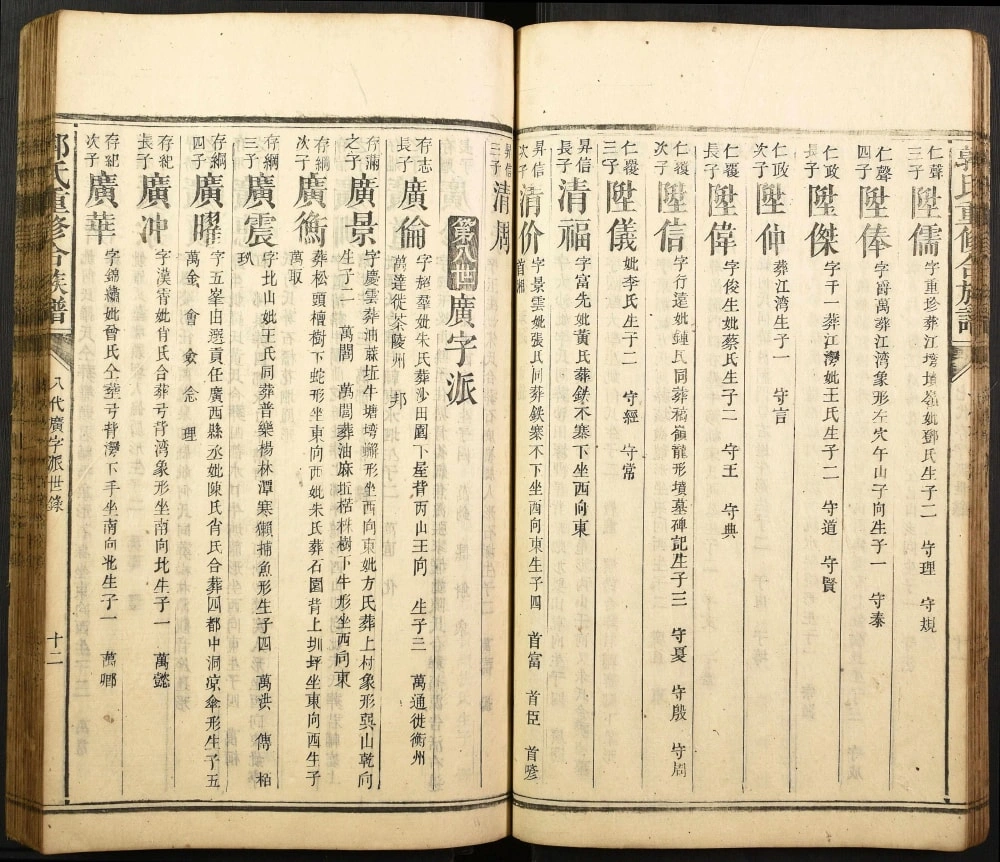 郭氏重修合族譜
仁聲三子 陞儒 字重珍葬江塝墈嶺妣鄧氏生子二 守理 守規
仁聲四子 陞俸 字爵萬葬江湾象形左穴午山子向生子一 守泰
仁政長子 陞傑 字千一葬江灣妣王氏生子二 守道 守賢
仁政次子 陞仲 葬江湾生子一 守言
仁覆長子 陞偉 字俊生妣蔡氏生子二 守王 守典
仁覆次子 陞信 字行遠妣鍾氏同葬稿嶺龍形墳墓碑記生子三 守夏 守殷 守周
仁覆三子 陞儀 妣李氏生子二 守經 守常
昇信長子 清福 字富先妣黃氏葬鉄不寨下坐西向東
昇信次子 清价 字景雲妣張氏同葬鉄寨不下坐西向東生子四 首富 首臣 首 首湘
昇信三子 清周
第八世 廣字派
存志長子 廣倫 字超羣妣朱氏葬沙田園卜屋背丙山王向 生子三 萬通徙衡州
萬達徙茶陵州 邦
存滿之子 廣景 字慶雲葬油蔴坵牛塘塝獬形坐西向東妣方氏葬上村象形巽山乾向
生子一 萬閭 萬閭葬油麻坵楛秝樹下牛形坐西向東
存綱次子 廣衡 葬松頭檀樹下蛇形坐東向西妣朱氏葬石園背上圳坪坐東向西生子
萬取
存綱三子 廣震 字北山妣王氏同葬普樂楊林潭寒獺捕魚形生子四 萬洪 傳 栢
玖
存綱四子 廣曜 字五峯由選貢任廣西縣丞妣陳氏肖氏合葬四都中洞凉傘形生子五
萬金 會 僉 侖 理
存紀長子 廣冲 字漢霄妣肖氏合葬弓背湾象形坐南向北生子一 萬懿
存紀次子 廣華 字錦繡妣曾氏仝塟弓背灣下手坐南向北生子一 萬鄉
郭氏重修合族譜 八代廣字派世錄 十二